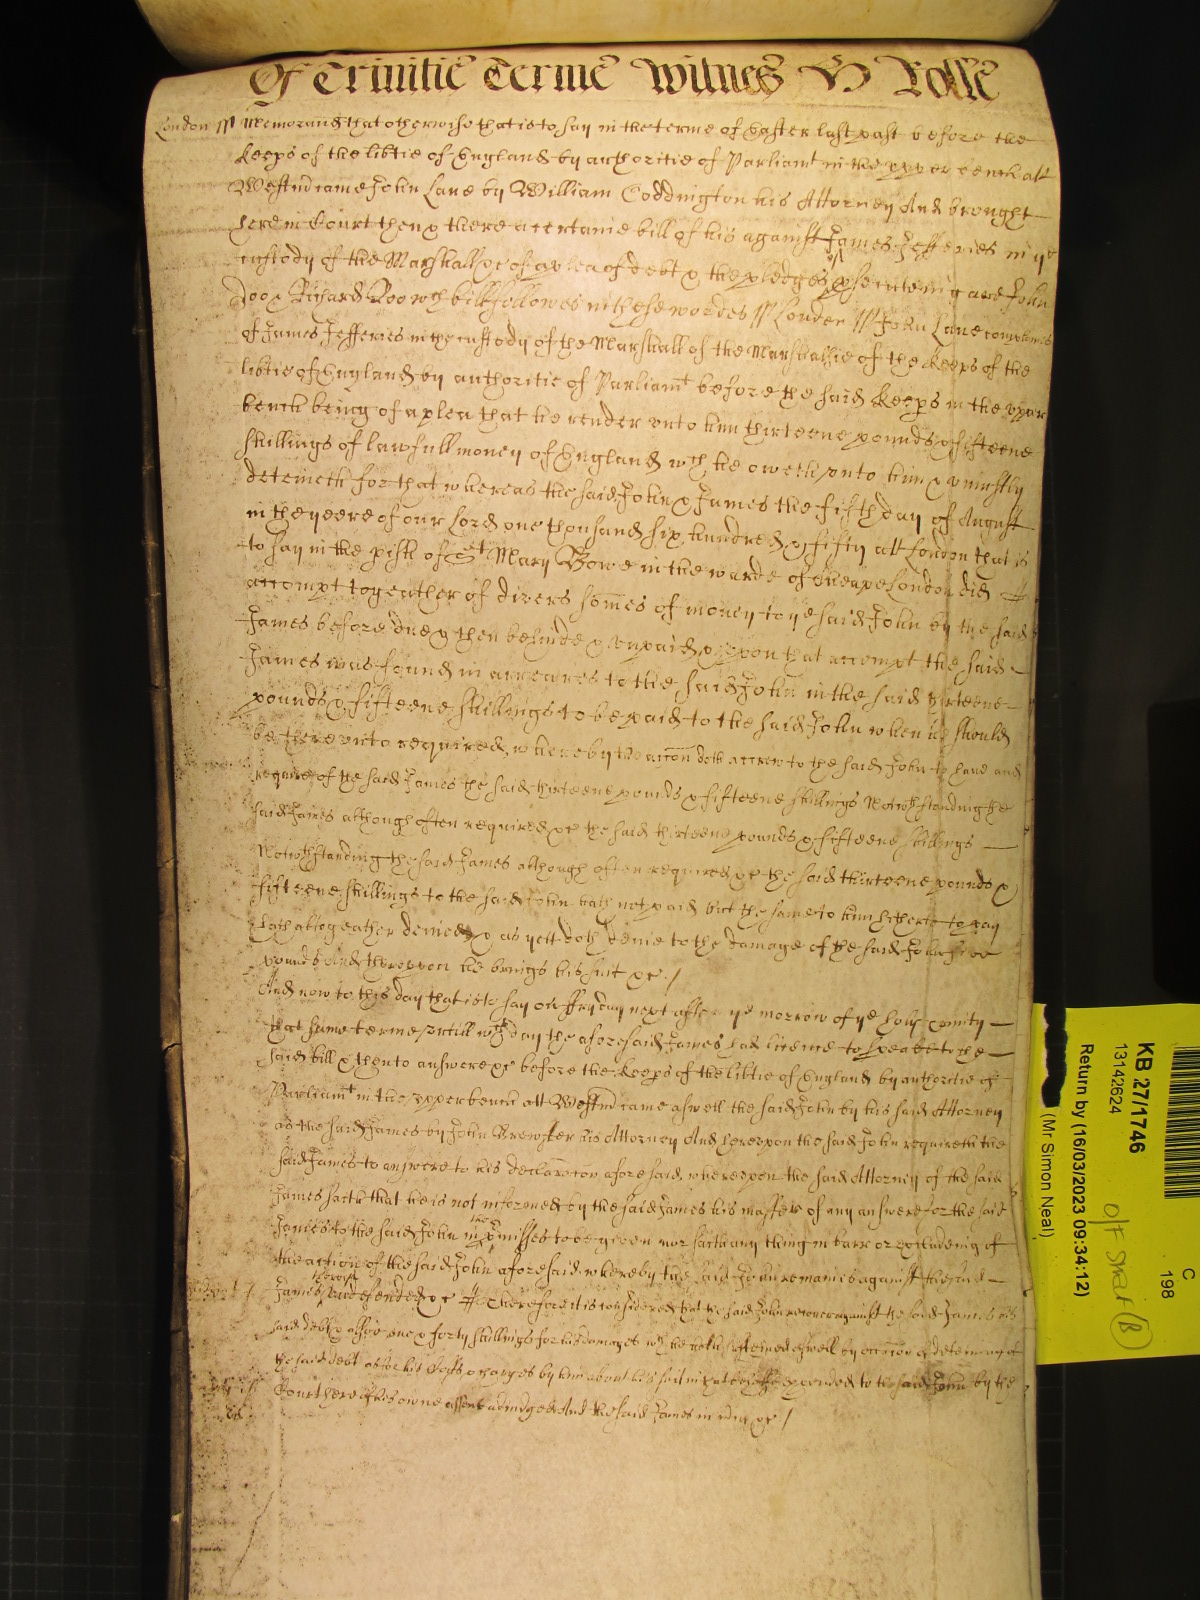 Of Trinitie Terme Witnes H Rolle
London ss Memorand that otherwise that is to say in the terme of Easter last past before the
keeps of the libtie of England by authoritie of Parliamt in the upper bench att
Westmr came John Lane by William Coddington his Attorney And brought
here in Court then & there a certaine bill of his against James Jefferies in ye
custody of the Marshall &c of a plea of debt & the pledges of psecuteing are John
Doo & Richard Roo wch bill followes in these wordes ss London ss John Lane complaines
of James Jefferies in the custody of the Marshall of the Marshallsie of the keeps of the
libtie of England by authoritie of Parliamt before the said keeps in the upper
bench being of a plea that he render unto him thirteene pounds & fifteene
shillings of lawfull money of England wch he oweth unto him & uniustly
deteineth for that whereas the said John & James the fifth day of August
in the yeere of our Lord one thousand six hundred & fifty att London that is
to say in the pish of St Mary Bowe in the warde of Cheape London did
accompt togeather of divers somes of money to ye said John by the said
James before due & then behinde & unpaid & upon that accompt the said
James was found in arreares to the said John in the said thirteene
pounds & fifteene shillings to be paid to the said John when he should
be thereunto required whereby the accon doth accrew to the said John to have and
require of the said James the said thirteene pounds & fifteene shillings Notwthstanding the
said James although often required &c the said thirteene pounds & fifteene shillings
Notwthstanding the said James although often required &c the said thirteene pounds &
fifteene shillings to the said John hath not paid but the same to him hitherto to pay
hath altogeather denied & as yett doth denie to the damage of the said John five
pounds And thereupon he brings his suit &c /
And now to this day that is to say on ffryday next after ye morrow of ye holy trinity
that same terme untill wch day the aforesaid James had licence to speake to the
said bill & then to answere &c before the keeps of the libtie of England by authoritie of
Parliamt in the upper bench att Westmr came aswell the said John by his said Attorney
as the said James by John Brewster his Attorney And hereupon the said John requireth the
said James to answere to his declaracon aforesaid whereupon the said Attorney of the said
James saith that he is not informed by the said James his master of any answere for the said
James to the said John in the pmisses to be given nor saith any thing in barr or excludeing of
the action of the said John aforesaid whereby the said John remaines against the said
James therein undefended &c Therefore it is considered that the said John recover against the said James his
said debt & alsoe one & forty shillings for his damages wch he hath susteined aswell by occasion of deteineing of
the said debt as for his costs & charges by him about his suit in that behalfe expended to the said John by the
Court here of his owne assent adiudged And the said James in mia &c /
KB 27/1746
13142624
Return by (16/03/2023 09:34:12)
(Mr Simon Neal)
C
198